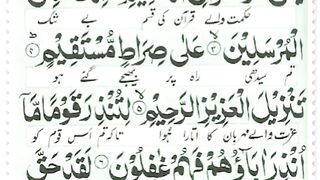 حکمت والے قرآن کی قسم بے شک
الْمُرْسَلِيْنَ ۙ﴿۳﴾ عَلٰى صِرَاطٍ مُّسْتَقِيْمٍ ؕ﴿۴﴾
تم سیدھی راہ پر بھیجے گئے ہو
تَنْزِيْلَ الْعَزِيْزِ الرَّحِيْمِ ۙ﴿۵﴾ لِتُنْذِرَ قَوْمًا مَّاۤ
عزت والے مہربان کا اتارا ہوا تاکہ تم اس قوم کو
اُنْذِرَ اٰبَآؤُهُمْ فَهُمْ غٰفِلُوْنَ ﴿۶﴾ لَقَدْ حَقَّ